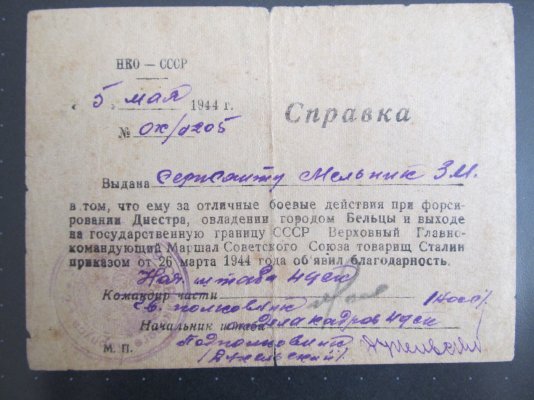 НКО — СССР
5 мая 1944 г.
Справка
№ ох/0205
Выдана сержанту Мельник З.М.
в том, что ему за отличные боевые действия при форси-
ровании Днестра, овладении городом Бельцы и выходе
на государственную границу СССР Верховный Главно-
командующий Маршал Советского Союза товарищ Сталин
приказом от 26 марта 1944 года об'явил благодарность.
Нач. штаба
Командир части
Гв. полковник
Начальник штаба отдела кадров
Подполковник
М. П.